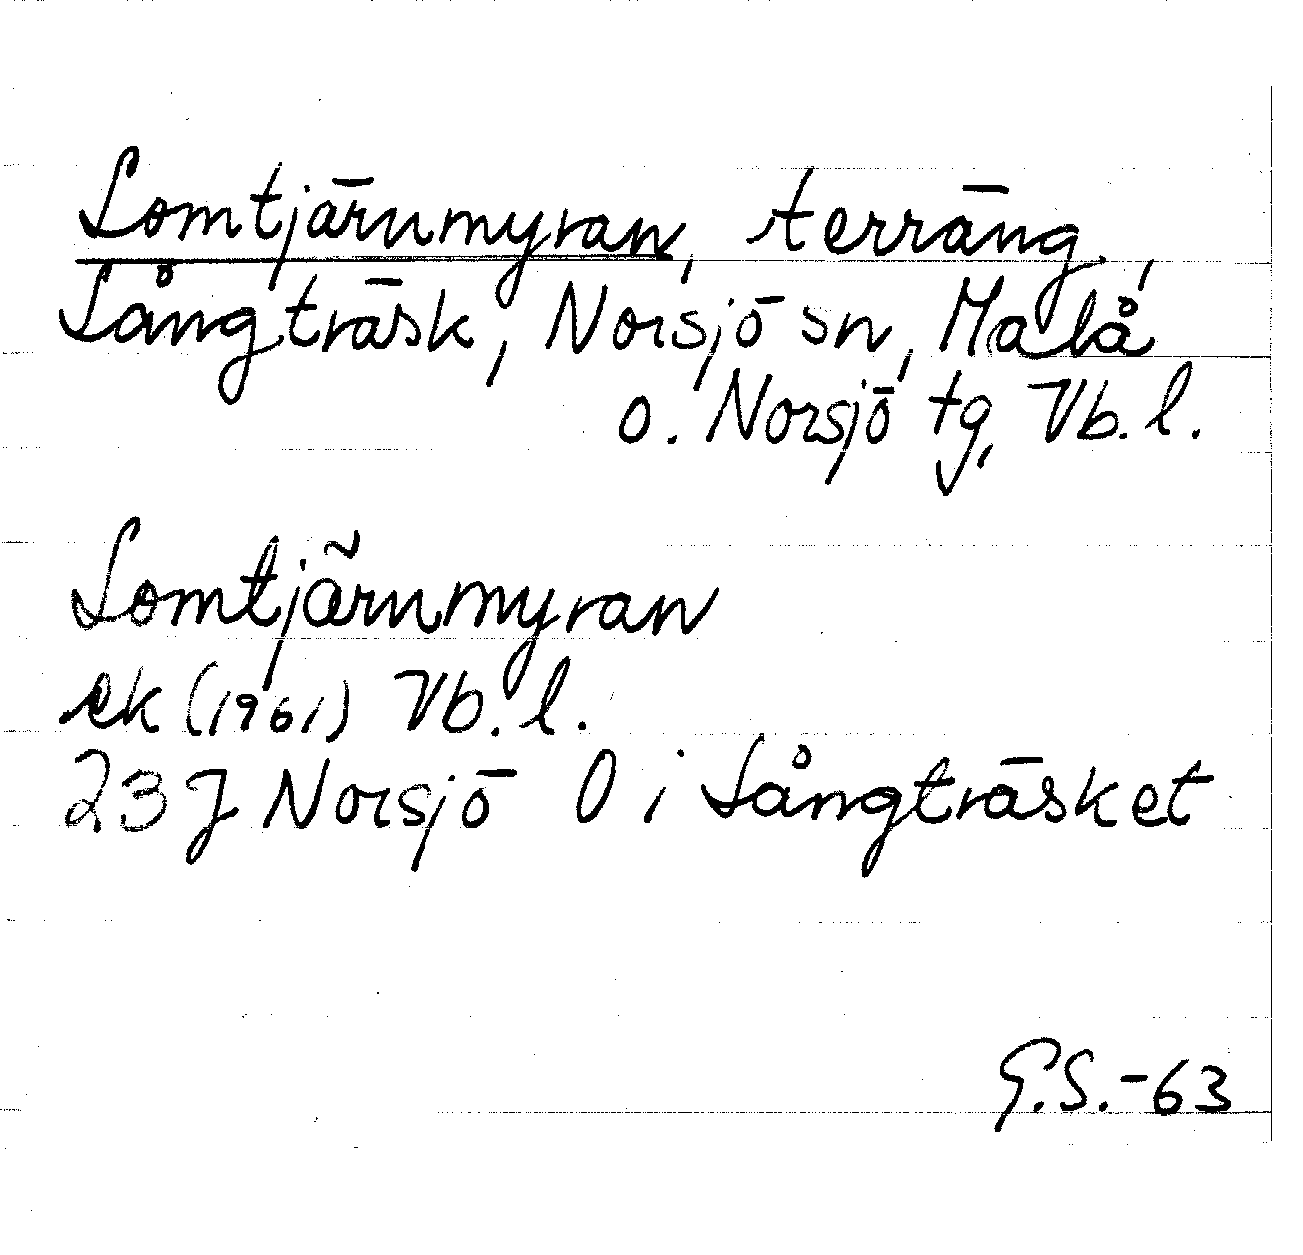 Lomtjärnmyran, terräng,
Långträsk, Norsjö sn, Malå
o. Norsjö tg, Vb. l.
Lomtjärnmyran
ek (1961) Vb. l.
23J Norsjö O i Långträsket
G.S.-63